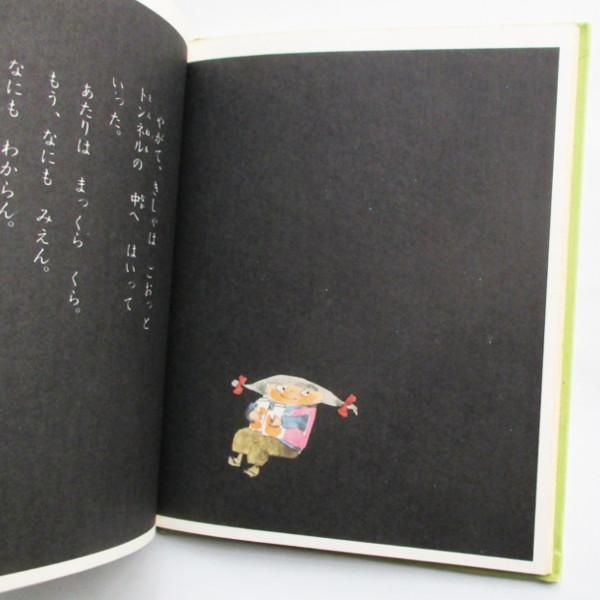 やがて、きしゃは ごおっと
トンネルの 中へ はいって
いった。
あたりは まっくら くら。
もう、なにも みえん。
なにも わからん。